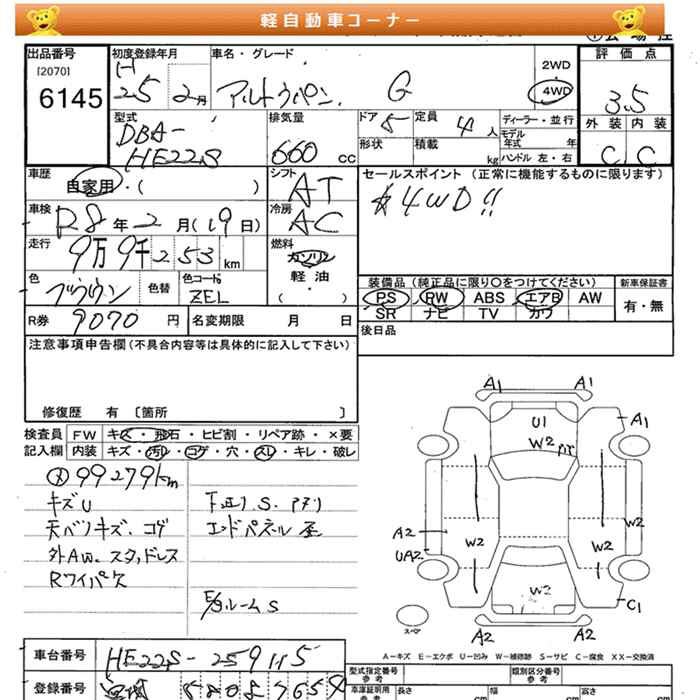 軽自動車コーナー
出品番号 初度登録年月 車名・グレード 評価点
[2070] H 2WD
6145 25 2月 アルトラパン G 4WD 3.5
型式 排気量 ドア 5 定員 4 人 ディーラー・並行 外装 内装
DBA- モデル年式 年 C C
HE22S 660 CC 形状 積載 kg ハンドル 左・右
車歴 シフト セールスポイント (正常に機能するものに限ります)
自家用・( ) AT 4WD!!
車検 R8年2月(19日) 冷房 AC
走行 9万9千253km 燃料 ガソリン
軽油
・
( )
色 ブラウン 色替 色コード ZEL
装備品 (純正品に限り〇をつけてください) 新車保証書
PS PW ABS エアB AW 有・無
SR ナビ TV カワ
R券 9070 円 名変期限 月 日 後日品
注意事項申告欄(不具合内容等は具体的に記入して下さい)
修復歴 有 〔箇所 〕
検査員 FW キズ・飛石・ヒビ割・リペア跡・×要
記入欄 内装 キズ・汚レ・コゲ・穴・スレ・キレ・破レ
99279km
キズU
天ベリキズ、コゲ
外AW、スタッドレス
Rワイパー欠
S.
エンドパネル歪
E/ルームS
A1 A1
U1 A1
W2
A2 W2 W2 W2
UA2
W2 C1
スペア A2 A2
A-キズ E-エクボ U-凹み W-補修跡 S-サビ C-腐食 XX-交換済
車台番号 HE22S-259115
型式指定番号 類別区分番号
参考 参考
登録番号 宮城 580 8 7659
車庫証明用 長さ 幅 高さ
参考 cm cm cm